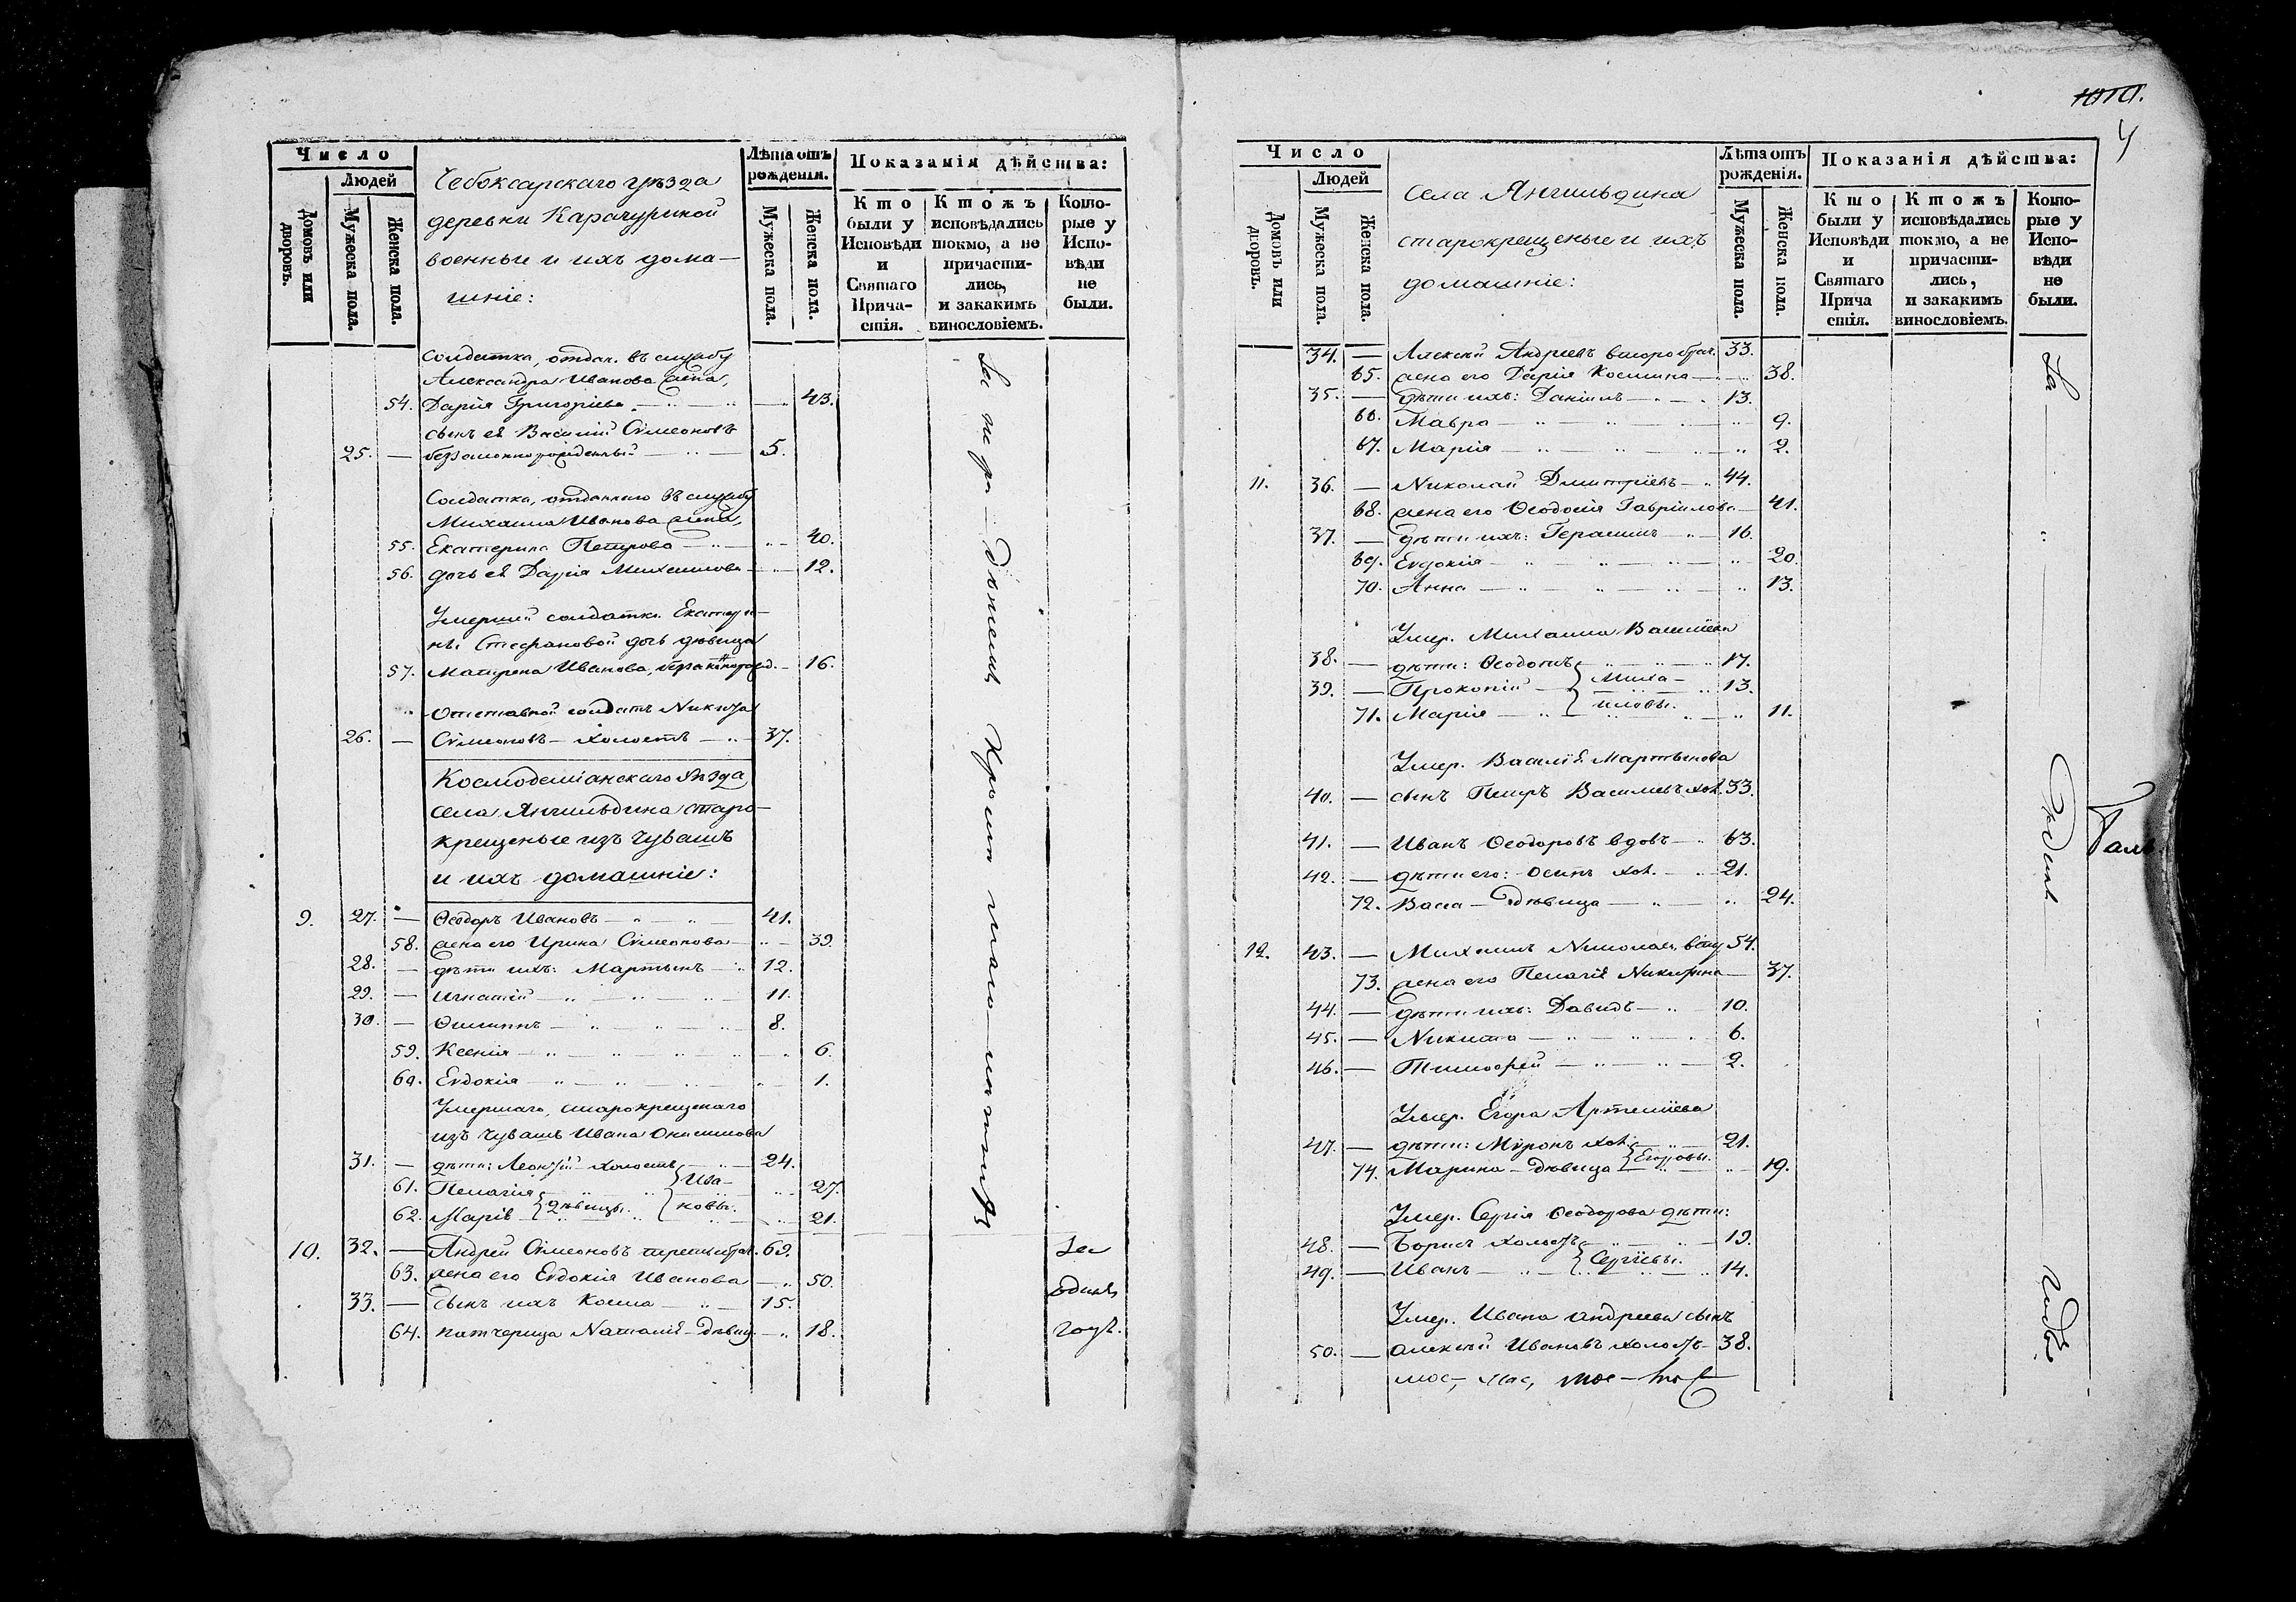 Число
Людей
Домовъ или дворовъ.
Мужеска пола.
Женска пола.
Чебоксарскаго уѣзда
деревни Карачуриной
военные и ихъ дома-
шніе:
Лѣта отъ рожденія.
Мужеска пола.
Женска пола.
Показанія дѣйства:
Кто были у Исповѣди и Святаго Прича- стія.
Ктожъ исповѣдались токмо, а не причасти- лись, и закакимъ винословіемъ.
Кото- рые у Испо- вѣди не были.
Солдатка, отдан. въ службу
Александра Иванова жена,
54. Дарія Григоріева 43.
сынъ ея Василій Сѵмеоновъ
25. — беззаконнорожденный 5.
Солдатка, отданнаго въ службу
Михаила Иванова жена,
55. Екатерина Петрова 40.
56. дочь ея Дарія Михаилова 12.
Умершей солдатки Екатери-
ны Стефановой дочь дѣвица
57. Матрена Иванова, 16.
Отставной солдатъ Никита
26. — Сѵмеоновъ — холостъ 37.
Космодеміанскаго уѣзда
села Янгильдина старо-
крещеные изъ чувашъ
и ихъ домашніе:
9. 27. — Ѳеодоръ Ивановъ 41.
58. жена его Ирина Сѵмеонова 39.
28. — дѣти ихъ: Мартынъ 12.
29. — Игнатій 11.
30. — Филиппъ 8.
59. Ксенія 6.
60. Евдокія 1.
Умершаго, старокрещенаго
изъ чувашъ Ивана Онисимова
31. — дѣти: Леонтій холостъ 24.
61. Пелагія 27.
62. Марія дѣвицы. Ива-
новы. 21.
10. 32. — Андрей Сѵмеоновъ третьебрач. 69.
63. жена его Евдокія Иванова 50.
33. — сынъ ихъ Косма 15.
64. патчерица Наталія дѣвиц. 18.
За не ра- дѣніемъ Кромѣ мало-лѣтнихъ
За
одинъ
годъ.
4
Число
Людей
Домовъ или дворовъ.
Мужеска пола.
Женска пола.
Села Янгильдина
старокрещеные и ихъ
домашніе:
Лѣта отъ рожденія.
Мужеска пола.
Женска пола.
Показанія дѣйства:
Кто были у Исповѣди и Святаго Прича стія.
Ктожъ исповѣдались токмо, а не причасти- лись, и закакимъ винословіемъ.
Кото- рые у Испо- вѣди не были.
34. — Алексѣй Андреевъ второбрач. 33.
65. жена его Дарія Космина 38.
35. — дѣти ихъ: Даніилъ 13.
66. Мавра 9.
67. Марія 2.
11. 36. — Николай Дмитріевъ 44.
68. жена его Ѳеодосія Гавріилова 41.
37. — дѣти ихъ: Герасимъ 16.
69. Евдокія 20.
70. Анна 13.
Умер. Михаила Василіева
38. — дѣти: Ѳеодотъ 17.
39. — Прокопій Миха- 13.
71. Марія иловы. 11.
Умер. Василія Мартынова
40. — сынъ Петръ Василіевъ хол. 33.
41. — Иванъ Ѳеодоровъ вдовъ 63.
42. — дѣти его: Осипъ хол. 21.
72. Васса — дѣвица 24.
12. 43. — Михаилъ Николаевъ 54.
73. жена его Пелагія Никитина 37.
44. — дѣти ихъ: Давидъ 10.
45. — Никита 6.
46. — Тимоѳей 2.
Умер. Егора Артеміева
47. — дѣти: Мѵронъ хол. 21.
74. Марина — дѣвица Егоровы. 19.
Умер. Сергія Ѳеодорова дѣти:
48. — Борисъ холостъ 19.
49. — Иванъ Сергіевы. 14.
Умер. Ивана Андреева сынъ
50. — Алексѣй Ивановъ холостъ 38.
За одинъ годъ.